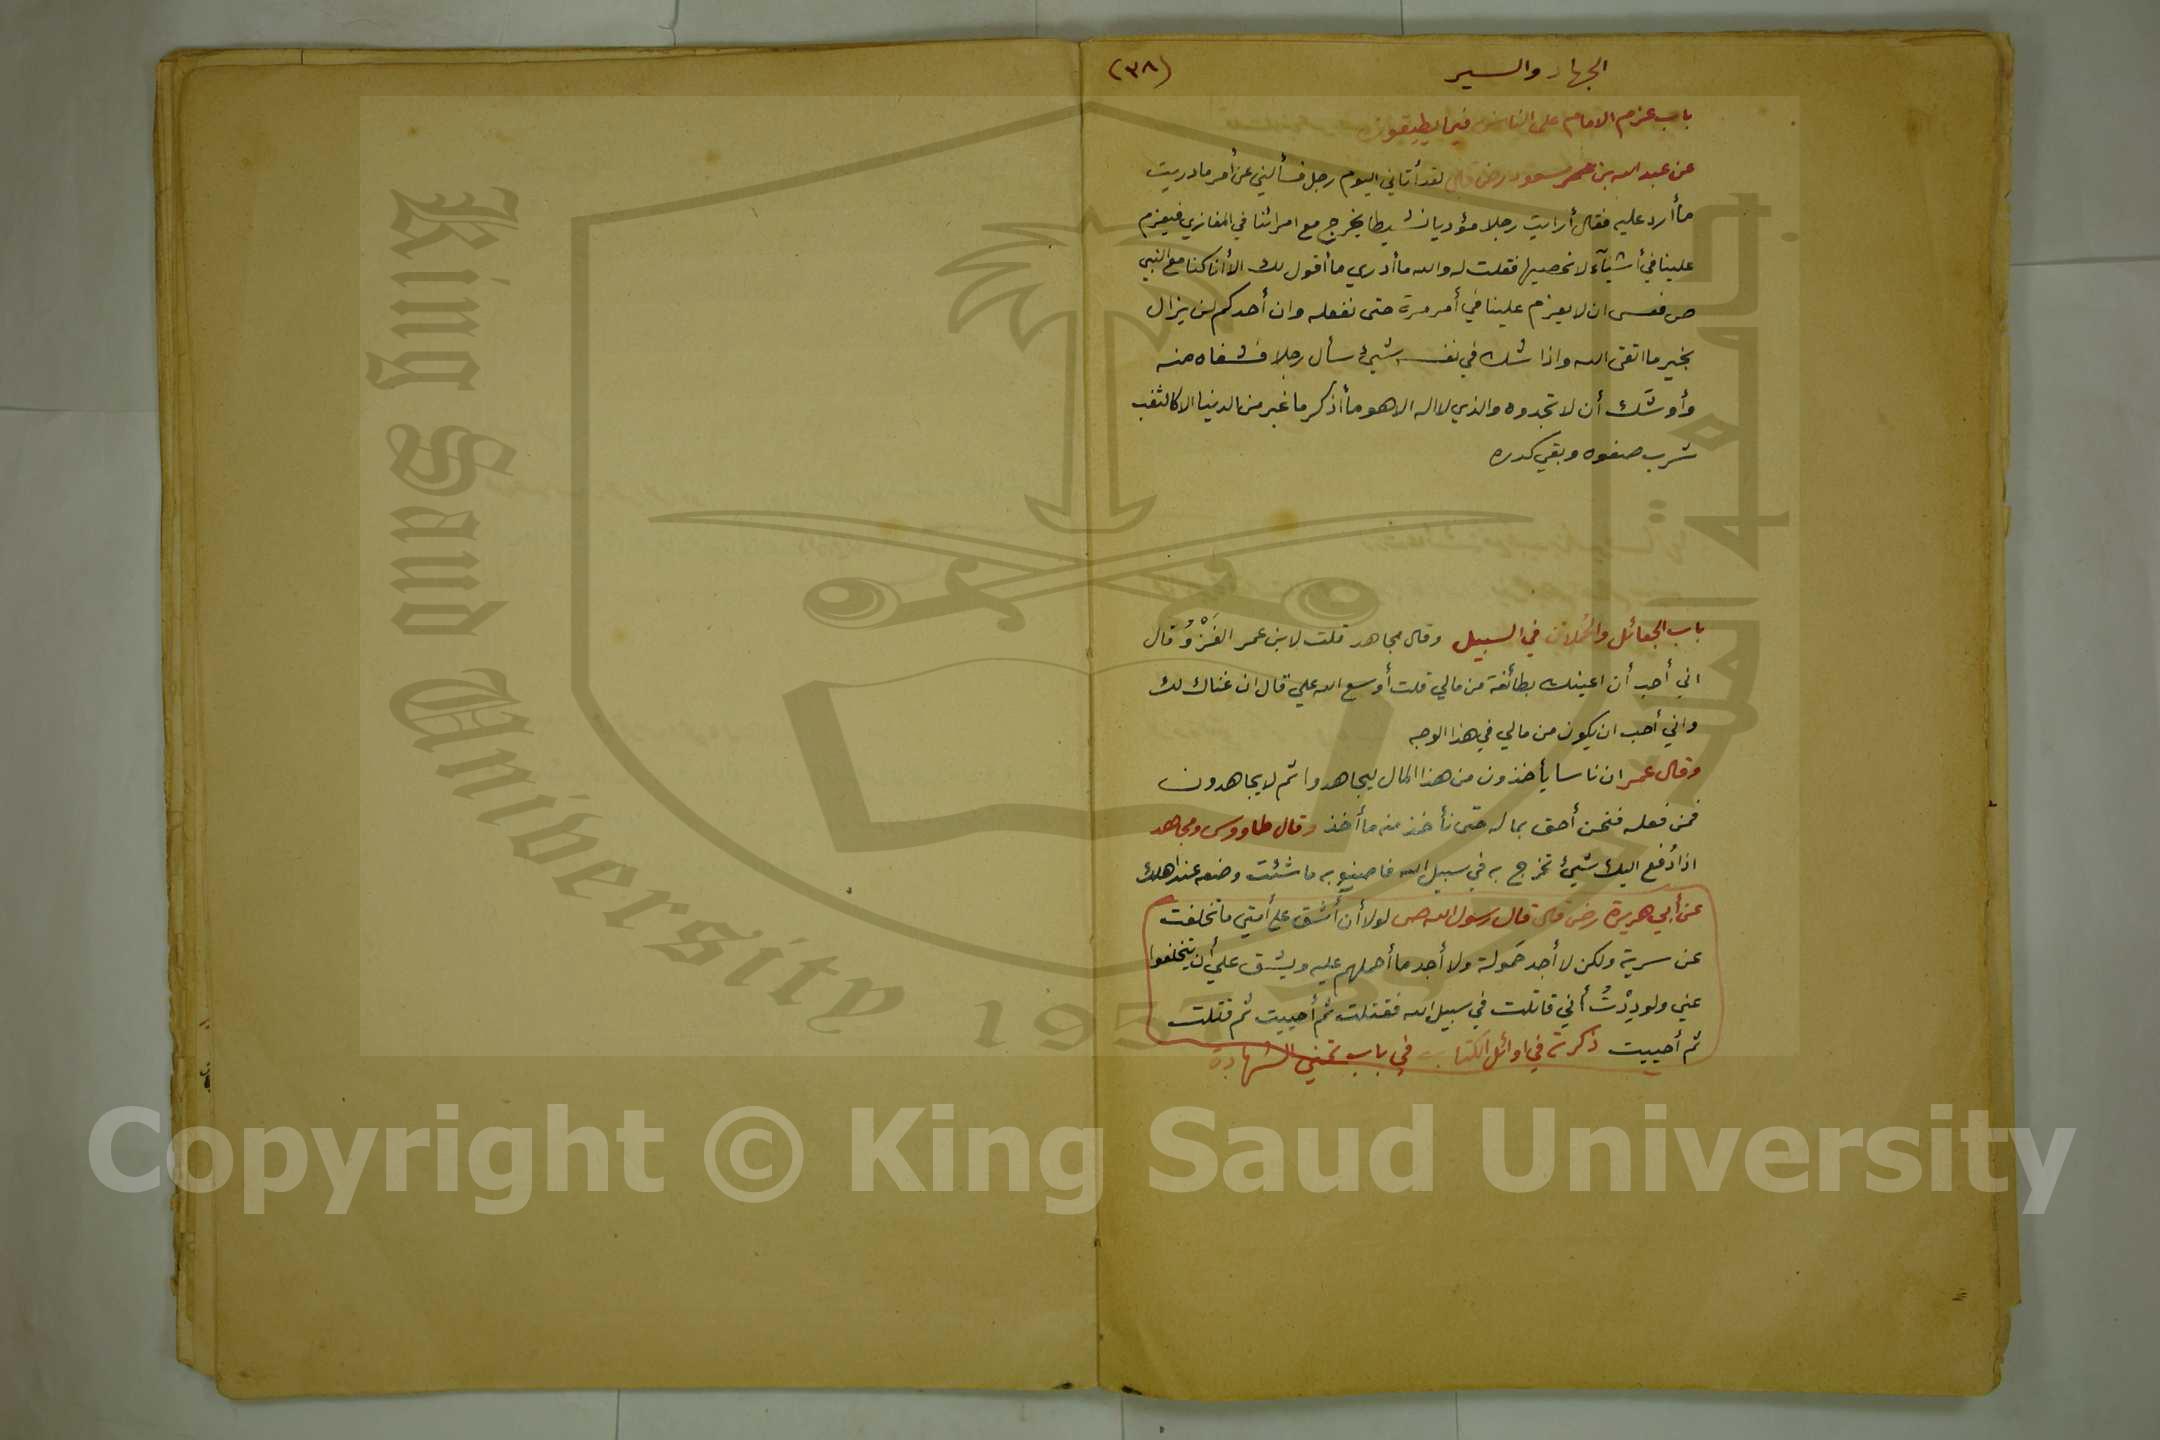 الجهاد والسير
(٣٨)
باب عزم الامام على الناس فيما يطيقون
عن عبد الله بن مسعود رض قال لقد أتاني اليوم رجل فسألني عن أمر ما دريت
ما أرد عليه فقال أرايت رجلا مؤديا نشيطا يخرج مع امرائنا في المغازي فيعزم
علينا في أشيآء لا نحصيها فقلت له والله ما أدري ما أقول لك الا أنا كنا مع النبي
ص فعسى ان لا يعزم علينا في أمر مرة حتى نفعله وان أحدكم لن يزال
بخير ما اتقى الله واذا شك في نفسه شيئ سأل رجلا فشفاه منه
وأوشك أن لا تجدوه والذي لا اله الا هو ما أذكر ما غبر من الدنيا الا كالثغب
شرب صفوه وبقي كدره
باب الجعائل والحُملان في السبيل وقال مجاهد قلت لابن عمر الغَزْوُ قال
اني أحب أن اعينك بطائفة من مالي قلت أوسع الله علي قال ان غناك لك
واني أحب ان يكون من مالي في هذا الوجه
وقال عمر ان ناسا يأخذون من هذا المال ليجاهدوا ثم لا يجاهدون
فمن فعله فنحن أحق بماله حتى نأخذ منه ما أخذ وقال طاووس ومجاهد
اذا دُفع اليك شيئ تخرج به في سبيل الله فاصنع به ما شئت وضعه عند اهلك
عن أبي هريرة رض قال قال رسول الله ص لولا أن أشق على أمتي ما تخلفت
عن سرية ولكن لا أجد حَمولة ولا أجد ما أحملهم عليه ويشق علي أن يتخلفوا
عني ولودِدْتُ أني قاتلت في سبيل الله فقتلت ثم أحييت ثم قتلت
ثم أحييت ذكرته في اوائل الكتاب في باب تمني الشهادة
King Saud University
1957
Copyright © King Saud University